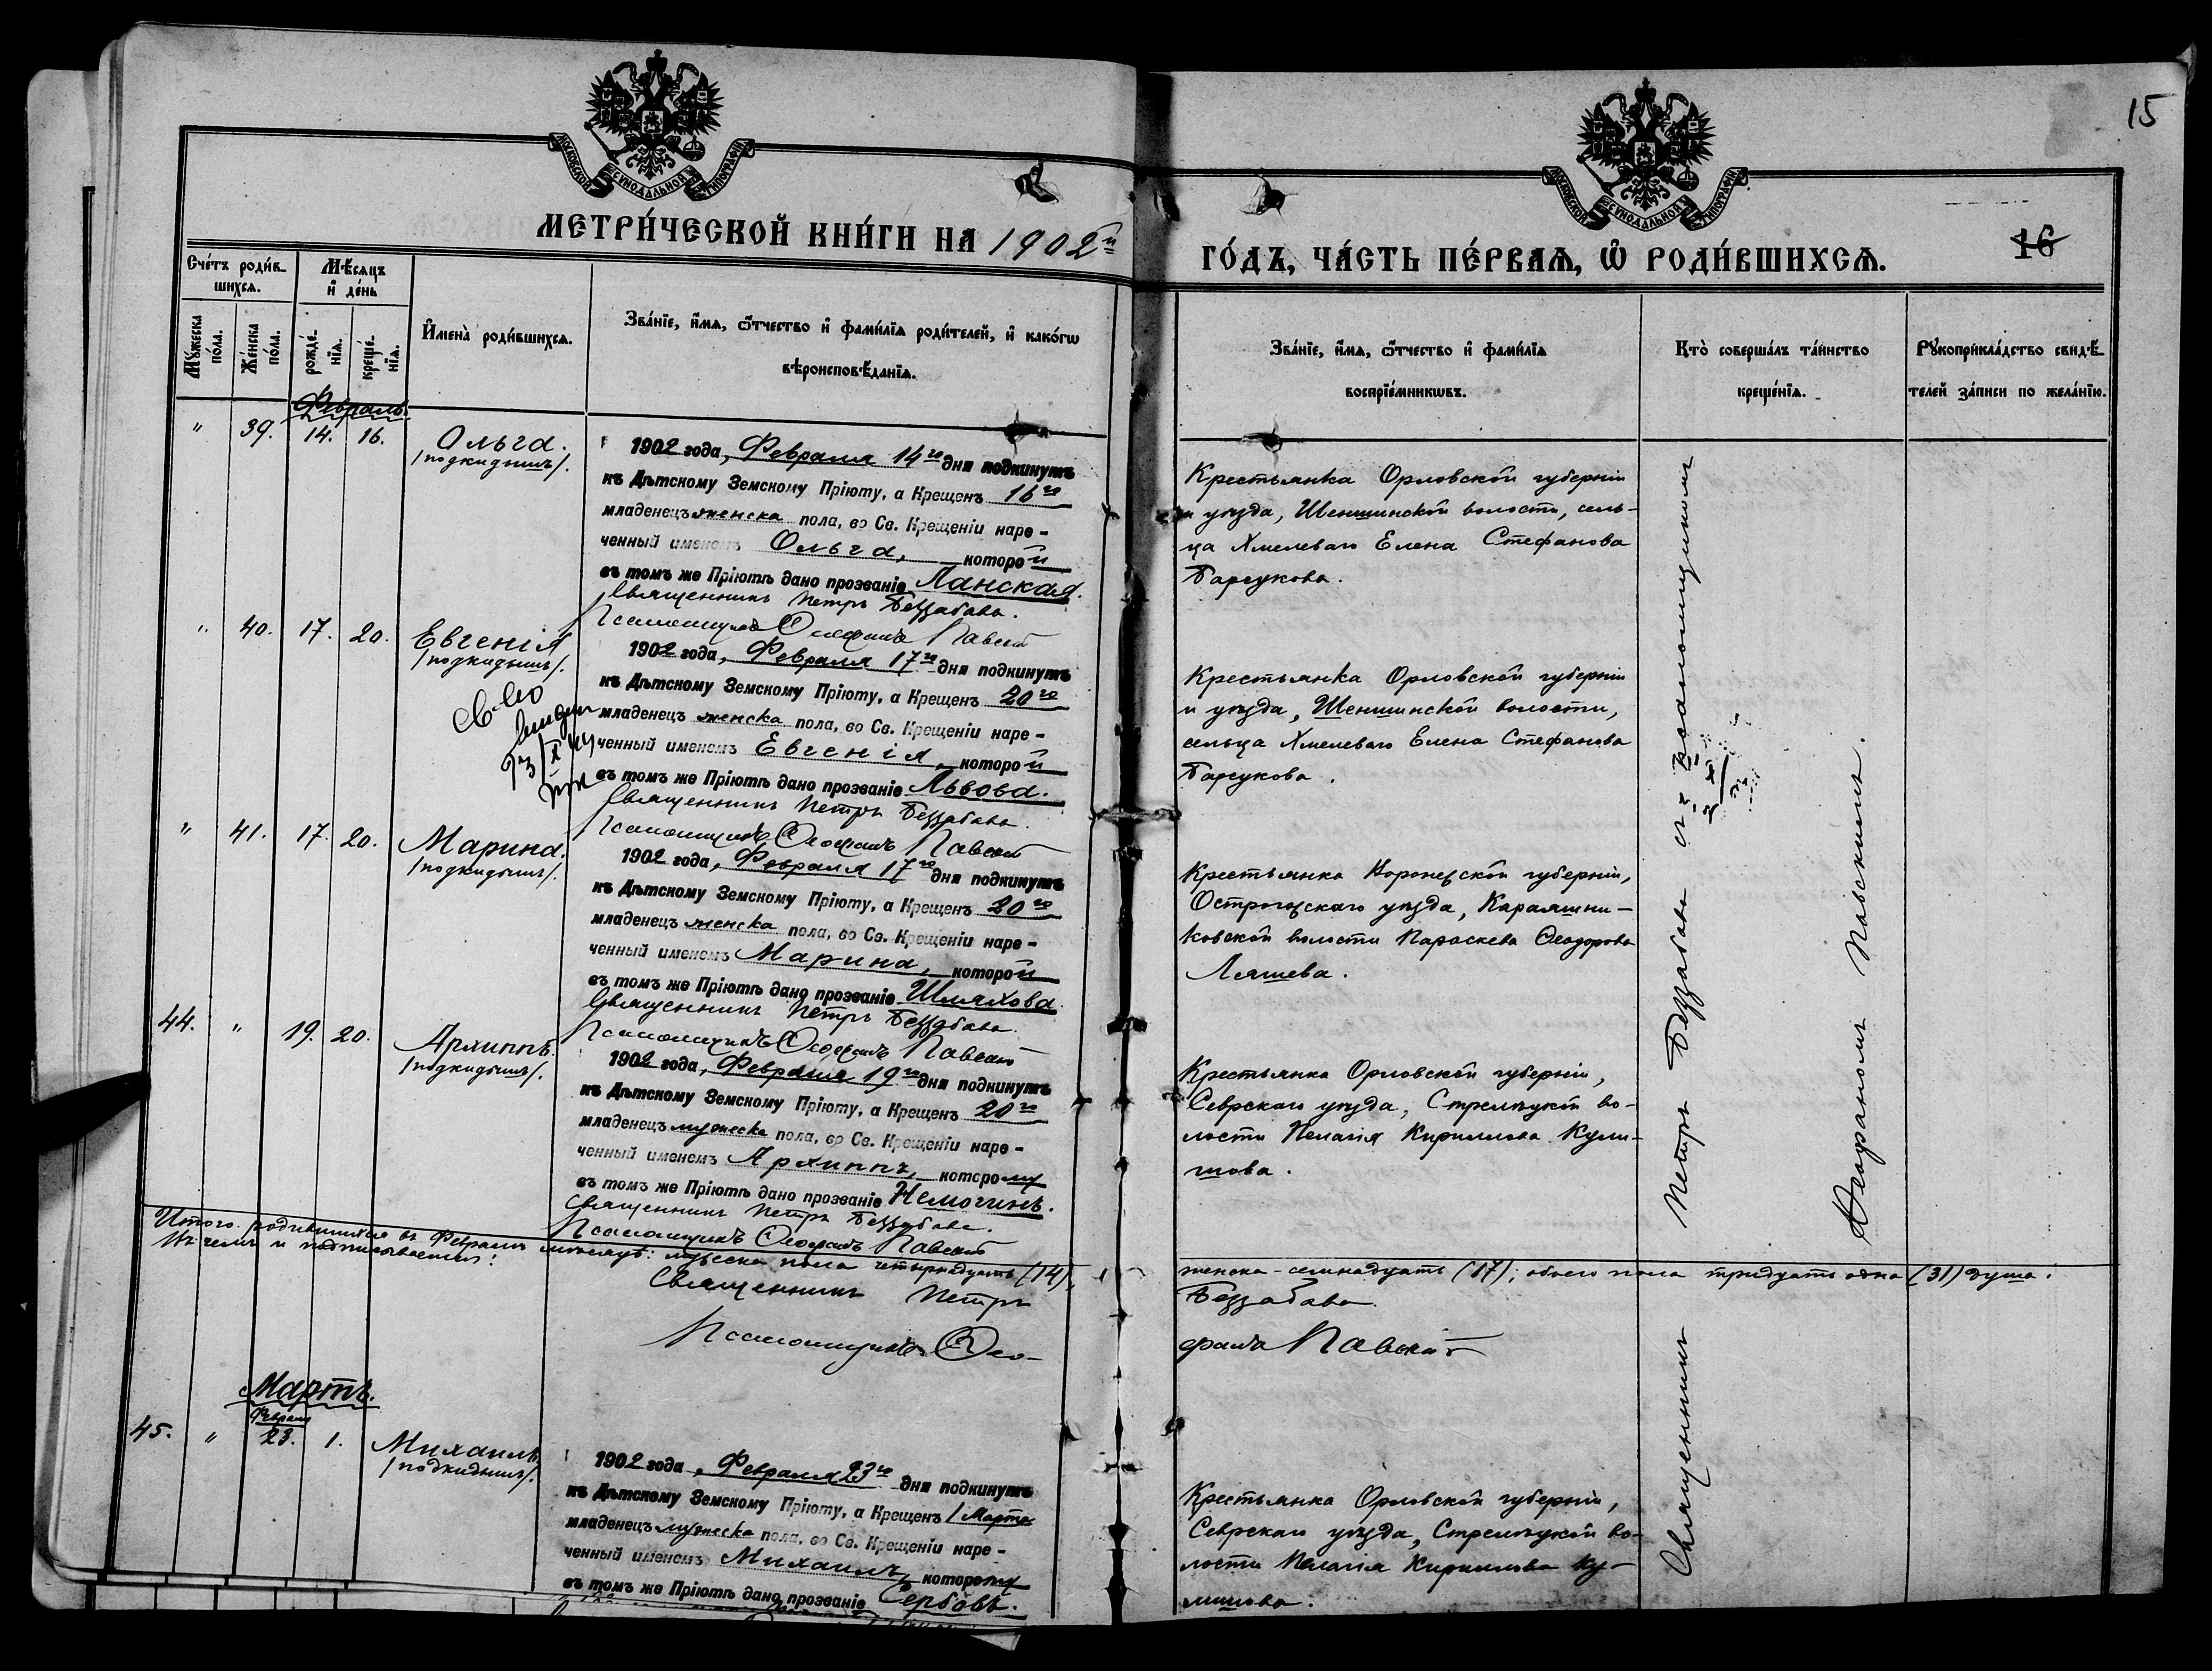 15
МОСКОВСКОЙ СѴНОДАЛЬНОЙ ТИПОГРАФІИ
МОСКОВСКОЙ СѴНОДАЛЬНОЙ ТИПОГРАФІИ
МЕТРИ́ЧЕСКОЙ КНИ́ГИ НА 1902й
ГО́ДЪ, ЧА́СТЬ ПЕ́РВАѦ, Ѡ҆ РОДИ́ВШИХСѦ.
16
Сче́тъ роди́в-
шихсѧ.
Мꙋ́жеска
по́ла.
Же́нска
по́ла.
Мѣ́сѧцъ
и҆ де́нь
рожде́-
нїѧ.
креще́-
нїѧ.
И҆мена̀ роди́вшихсѧ.
Зва́нїе, и҆́мѧ, ѻ҆́тчество и҆ фами́лїѧ роди́телей, и҆ како́гѡ
вѣроисповѣ́данїѧ.
Зва́нїе, и҆́мѧ, ѻ҆́тчество и҆ фами́лїѧ
воспрїе́мникѡвъ.
Кто̀ соверша́лъ та́инство
креще́нїѧ.
Рꙋкоприкла́дство свидѣ́-
телей за́писи по жела́нїю.
Февраль
" 39. 14. 16. Ольга.
/подкидышъ/.
1902 года, Февраля 14го дня подкинутъ
къ Дѣтскому Земскому Пріюту, а Крещенъ 16го
младенецъ женска пола, во Св. Крещеніи наре-
ченный именемъ Ольга, которой
въ томъ же Пріютѣ дано прозваніе Ланская.
Священникъ Петръ Беззабава.
Псаломщикъ Ѳеофанъ Павскій
Крестьянка Орловской губерніи
и уѣзда, Шеншинской волости, сель-
ца Хмелеваго Елена Стефанова
Барсукова.
" 40. 17. 20. Евгенія
/подкидышъ/.
1902 года, Февраля 17го дня подкинутъ
къ Дѣтскому Земскому Пріюту, а Крещенъ 20го
младенецъ женска пола, во Св. Крещеніи наре-
ченный именемъ Евгенія, которой
въ томъ же Пріютѣ дано прозваніе Львова.
Священникъ Петръ Беззабава.
Псаломщикъ Ѳеофанъ Павскій
Крестьянка Орловской губерніи
и уѣзда, Шеншинской волости,
сельца Хмелеваго Елена Стефанова
Барсукова.
" 41. 17. 20. Марина.
/подкидышъ/.
1902 года, Февраля 17го дня подкинутъ
къ Дѣтскому Земскому Пріюту, а Крещенъ 20го
младенецъ женска пола, во Св. Крещеніи наре-
ченный именемъ Марина, которой
въ томъ же Пріютѣ дано прозваніе Шляхова.
Священникъ Петръ Беззабава.
Псаломщикъ Ѳеофанъ Павскій
Крестьянка Воронежской губерніи,
Острогожскаго уѣзда, Караяшни-
ковской волости Параскева Ѳеодорова
Ляшева.
44. " 19. 20. Архиппъ.
/подкидышъ/.
1902 года, Февраля 19го дня подкинутъ
къ Дѣтскому Земскому Пріюту, а Крещенъ 20го
младенецъ мужеска пола, во Св. Крещеніи наре-
ченный именемъ Архиппъ, которому
въ томъ же Пріютѣ дано прозваніе Немогинъ.
Священникъ Петръ Беззабава.
Псаломщикъ Ѳеофанъ Павскій
Крестьянка Орловской губерніи,
Севрскаго уѣзда, Стрелецкой во-
лости Пелагія Кириллова Кули-
шова.
Итого родившихся въ Февралѣ мѣсяцѣ: мужеска пола четырнадцать (14), женска - семнадцать (17); обоего пола тридцать одна (31) душа.
Въ чемъ и подписываемся:
Священникъ Петръ Беззабава.
Псаломщикъ Ѳеофанъ Павскій
Мартъ.
Февраля
45. " 23. 1. Михаилъ
/подкидышъ/.
1902 года, Февраля 23го дня подкинутъ
къ Дѣтскому Земскому Пріюту, а Крещенъ 1 Марта
младенецъ мужеска пола, во Св. Крещеніи наре-
ченный именемъ Михаилъ, которому
въ томъ же Пріютѣ дано прозваніе Сербовъ.
Крестьянка Орловской губерніи,
Севрскаго уѣзда, Стрелецкой во-
лости Пелагія Кириллова Ку-
лишова.
Священникъ Петръ Беззабава съ Псаломщикомъ
Ѳеофаномъ Павскимъ.